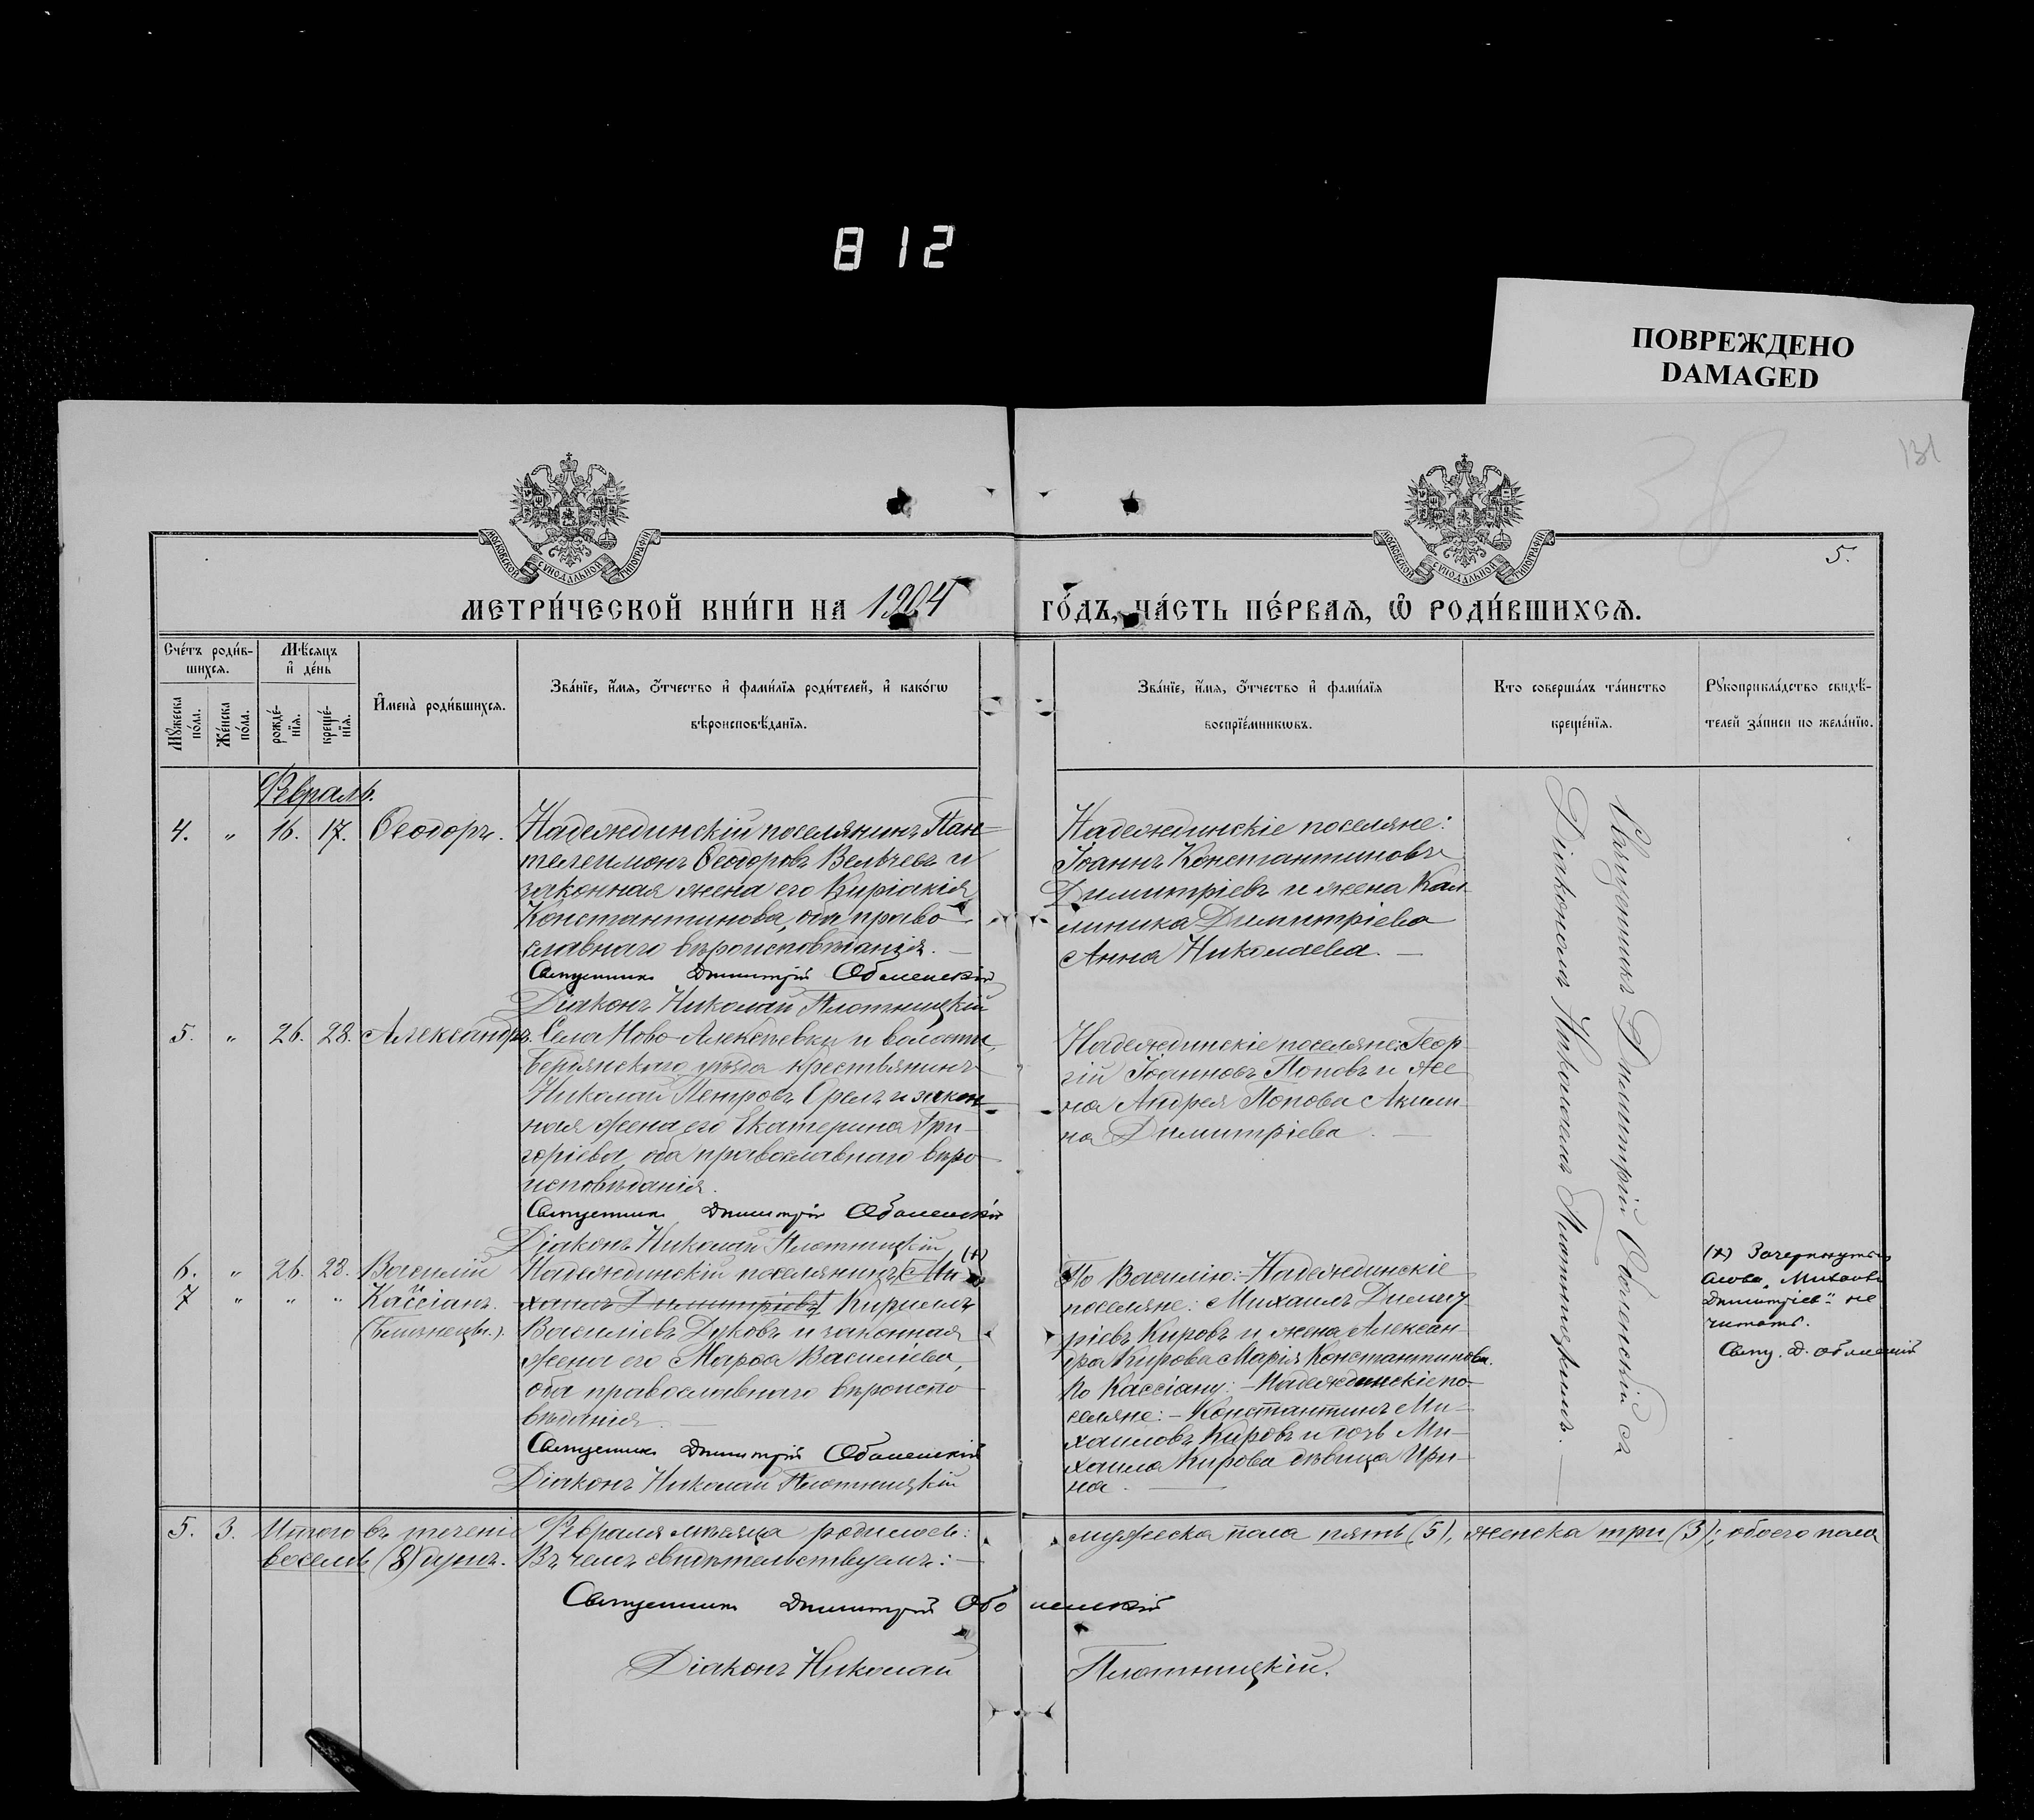 812
ПОВРЕЖДЕНО
DAMAGED
38
131
МОСКОВСКОЙ СѴНОДАЛЬНОЙ ТИПОГРАФІИ
МОСКОВСКОЙ СѴНОДАЛЬНОЙ ТИПОГРАФІИ
5.
МЕТРИ́ЧЕСКОЙ КНИ́ГИ НА 1904
ГО́ДЪ, ЧА́СТЬ ПЕ́РВАЯ, Ѡ҆ РОДИ́ВШИХСѦ.
Сче́тъ роди́в-
шихсѧ.
Мѣ́сяцъ
и҆ де́нь
Мꙋ́жеска
по́ла.
Же́нска
по́ла.
рожде́-
нїѧ.
креще́-
нїѧ.
И҆мена̀ роди́вшихсѧ.
Зва́нїе, и҆́мѧ, ѻ҆́тчество и҆ фами́лїѧ роди́телей, и҆ како́гѡ
вѣроисповѣ́данїѧ.
Зва́нїе, и҆́мѧ, ѻ҆́тчество и҆ фами́лїѧ
воспрїе́мникѡвъ.
Кто соверша́лъ та́инство
креще́нїѧ.
Рꙋкоприкла́дство свидѣ́-
телей за́писи по жела́нїю.
Февраль.
4. " 16. 17. Ѳеодоръ.
Надеждинскій поселянинъ Пан-
телеимонъ Ѳеодоровъ Вельчевъ и
законная жена его Киріакія
Константинова, оба право-
славнаго вѣроисповѣданія. —
Священникъ Димитрій Оболенскій
Діаконъ Николай Плотницкій
Надеждинскіе поселяне:
Іоаннъ Константиновъ
Димитріевъ и жена Кал-
линика Димитріева
Анна Николаева. —
5. " 26. 28. Александръ.
Села Ново-Алексѣевки и волости,
Бердянскаго уѣзда крестьянинъ
Николай Петровъ Орелъ и закон-
ная жена его Екатерина Гри-
горіева, оба православнаго вѣро-
исповѣданія.
Священникъ Димитрій Оболенскій
Діаконъ Николай Плотницкій
Надеждинскіе поселяне: Геор-
гій Іоанновъ Поповъ и же-
на Андрея Попова Акили-
на Димитріева. —
6. " 26. 28. Василій
7 " " " Кассіанъ.
(близнецы.)
Надеждинскій поселянинъ (Ми- (х)
хаилъ Димитріевъ) Кириллъ
Василіевъ Дуковъ и законная
жена его Марѳа Василіева,
оба православнаго вѣроиспо-
вѣданія. —
Священникъ Димитрій Оболенскій
Діаконъ Николай Плотницкій
По Василію: Надеждинскіе
поселяне: Михаилъ Димит-
ріевъ Кировъ и жена Алексан-
дра Кирова Марія Константинова.
По Кассіану: — Надеждинскіе по-
селяне: — Константинъ Ми-
хаиловъ Кировъ и дочь Ми-
хаила Кирова дѣвица Ири-
на. —
Священникъ Димитрій Оболенскій съ
Діакономъ Николаемъ Плотницкимъ. —
(х) Зачеркнутыя
слова „Михаилъ
Димитріевъ" не
читать.
Свящ. Д. Оболенскій
5. 3. Итого въ теченіе Февраля мѣсяца родилось: мужеска пола пять (5), женска три (3); обоего пола
восемь (8) душъ. Въ чемъ свидѣтельствуемъ: —
Священникъ Димитрій Оболенскій
Діаконъ Николай Плотницкій.